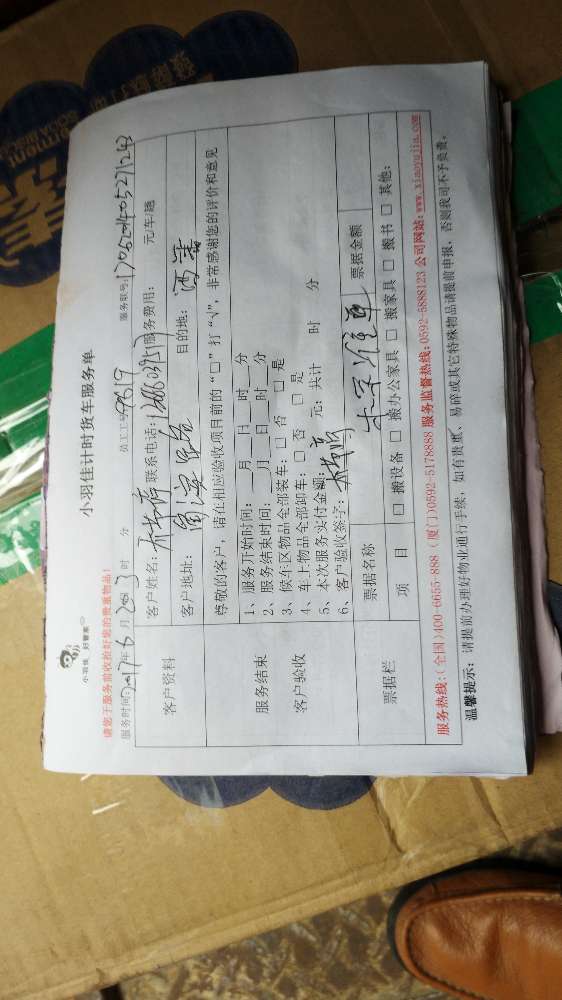 小羽佳计时货车服务单
小羽佳 好管家
请您于服务前收捡好您的贵重物品!
服务时间:2017年6月20日3时 分 员工工号:9619 服务联号:1706201405271243
客户资料
客户姓名: 联系电话: 服务费用: 元/车/趟
客户地址: 目的地:
服务结束
客户验收
尊敬的客户,请在相应验收项目前的“□”打“√”,非常感谢您的评价和意见
1、服务开始时间:___月___日___时___分
2、服务结束时间:___月___日___时___分
3、候车区物品全部装车:□ 否 □ 是
4、车上物品全部卸车:□ 否 □ 是
5、本次服务实付金额: 元;共计 时 分
6、客户验收签字:
票据栏
票据名称 票据金额
项 目 □ 搬设备 □ 搬办公家具 □ 搬家具 □ 搬书 □ 其他:
服务热线:(全国)400-6655-888 (厦门)0592-5178888 服务监督热线:0592-5888123 公司网站:www.xiaoyujia.com
温馨提示:请提前办理好物业通行手续,如有贵重、易碎或其它特殊物品请提前申报,否则我司不予负责。